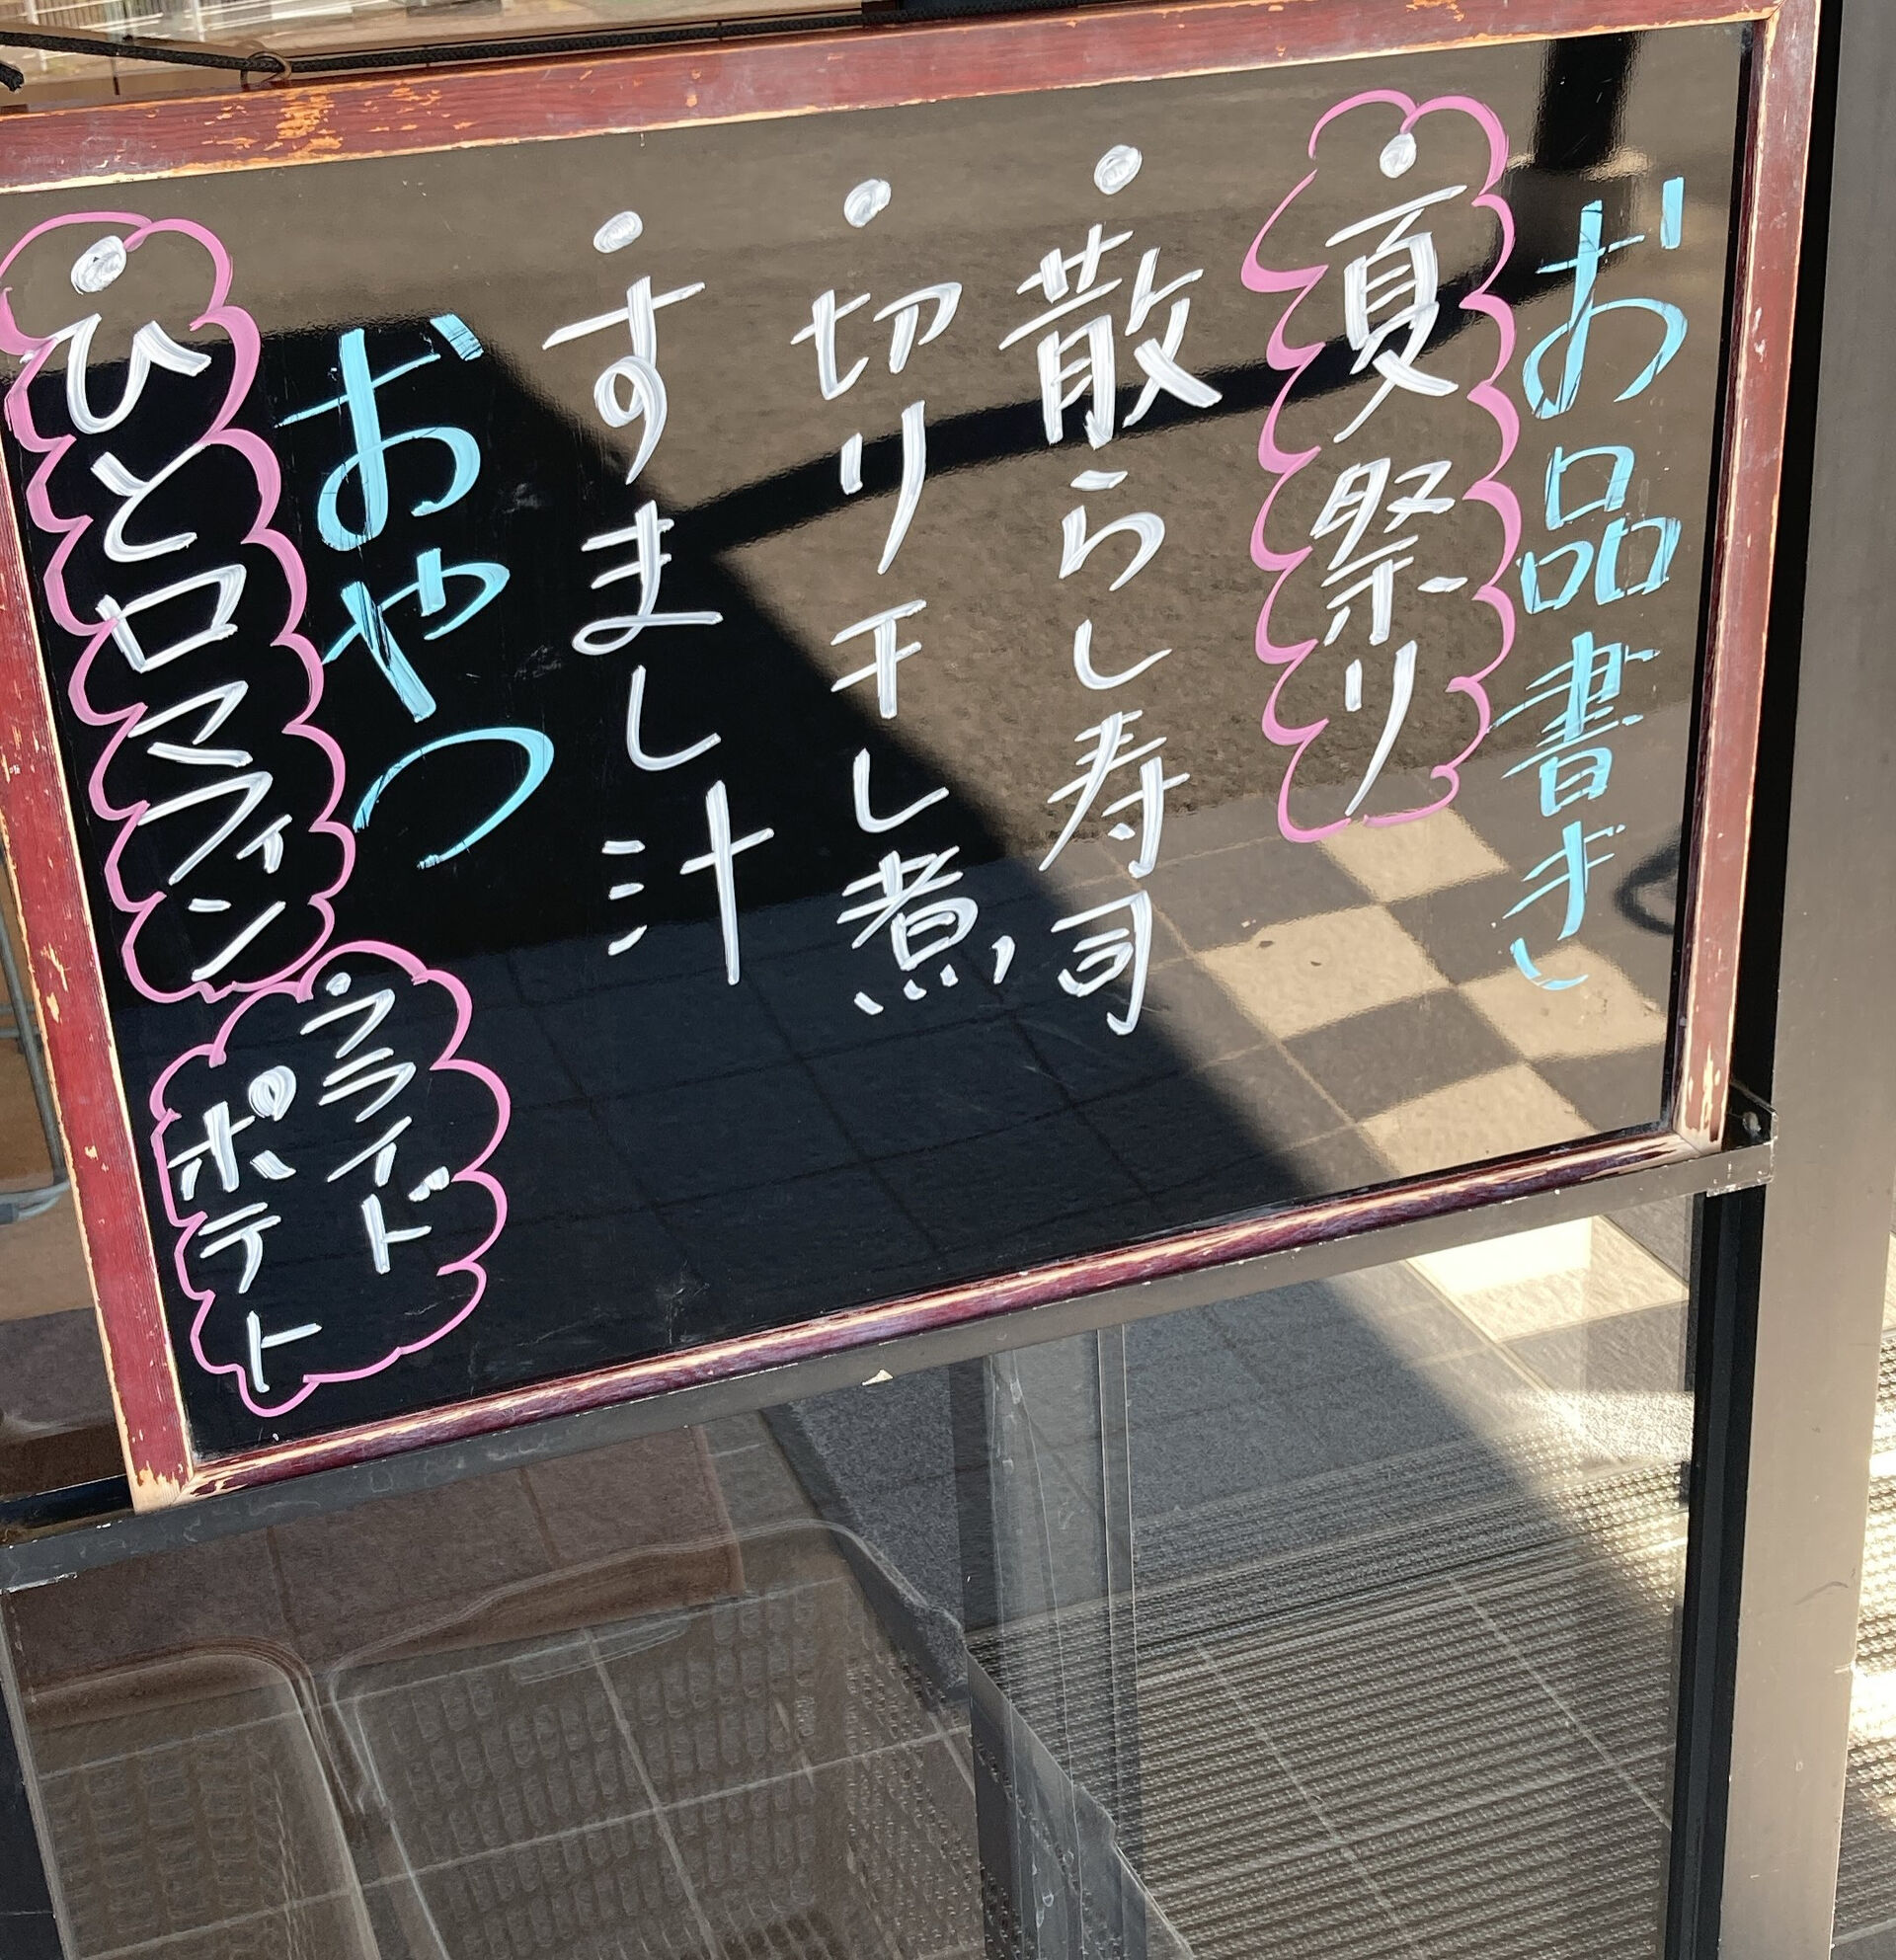 お品書き
・夏祭り
・散らし寿司
・切り干し煮
・すまし汁
おやつ
・ひと口マフィン
・フライド
ポテト